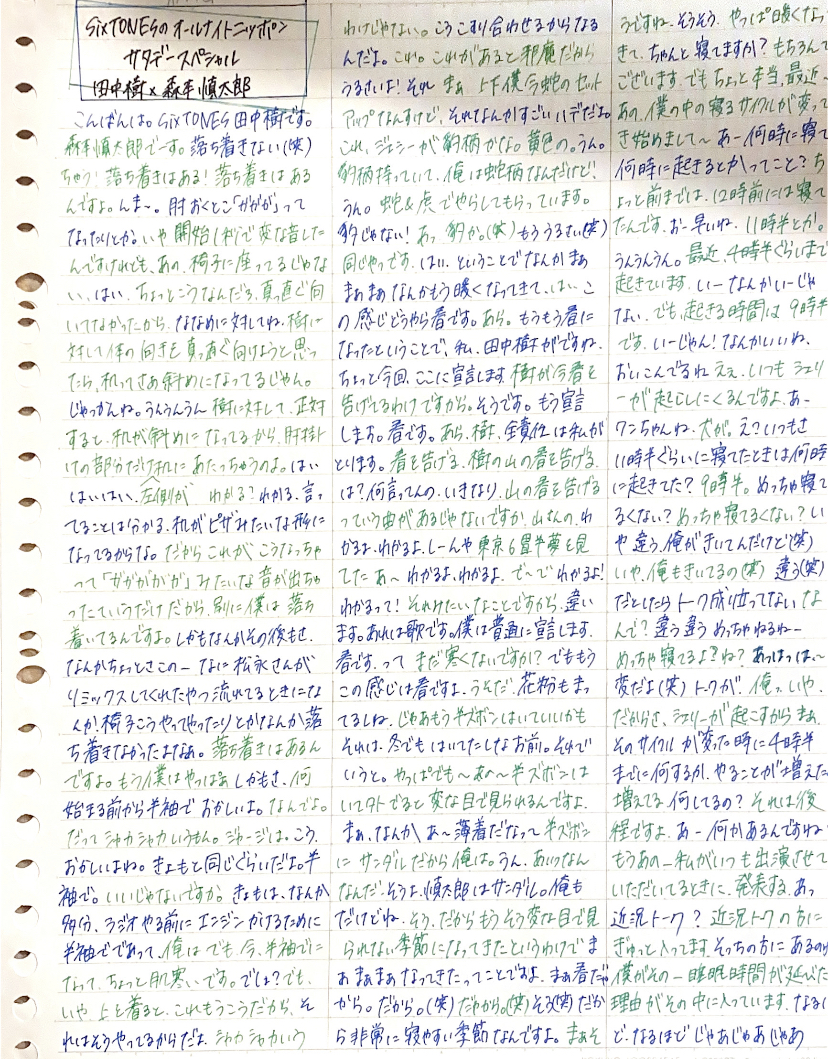 SixTONESのオールナイトニッポン
サタデースペシャル
田中樹×森本慎太郎
こんばんは。SixTONES田中樹です。
森本慎太郎でーす。落ち着きない(笑)
ちゃう！落ち着きはある！落ち着きはある
んですよ。んま〜。肘おくとこ「ガガガ」って
なったりとか。いや開始1秒で変な音した
んですけれども、あの、椅子に座ってるじゃな
い、はい、ちょっとこうなんだろ、真っ直ぐ向
いてなかったから、ななめに対してね、樹に
対して体の向きを真っ直ぐ向けようと思っ
たら、机ってさあ斜めになってるじゃん。
じゃっかんね。うんうんうん 樹に対して、正対
すると、机が斜めになってるから、肘掛
けの部分だけ机にあたっちゃうのよ。はい
はいはい。左側が わかる？わかる、言っ
てることは分かる。机がピザみたいな形に
なってるからな。だからこれがこうなっちゃ
って「ガガガガガ」みたいな音が出ちゃ
ったっていうだけだから、別に僕は落ち
着いてるんですよ。しかもなんかその後もさ、
なんかちょっとさこのーなに松永さんが
リミックスしてくれたやつ流れてるときにな
んか椅子こうやってやったりとかなんか落
ち着きなかったよなあ。落ち着きはあるん
ですよ。もう僕はやっぱぁ しかもさ、何
始まる前から半袖で おかしいよ。なんでよ。
だってシャカシャカいうもん。ジャージは。こう、
おかしいよね。きょもと同じぐらいだよ。半
袖で。いいじゃないですか。きょもは、なんか
多分、ラジオやる前にエンジンかけるために
半袖でであって、俺は でも、今、半袖でに
なって、ちょっと肌寒いです。でしょ？でも、
いや、上を着ると、これもうこうだから、そ
れはそうやってるからだよ シャカシャカいう
わけじゃない。こうこすり合わせるからなる
んだよ。これ。これがあると邪魔だから
うるさいよ！それ まぁ 上下僕今蛇のセット
アップなんすけど、それなんかすごいハデだよね
これ、ジェシーが豹柄かな。黄色の。うん。
豹柄持っていて、俺は蛇柄なんだけど、
うん。蛇&虎でやらしてもらっています。
豹じゃない！あっ 豹か。(笑)もううるさい(笑)
同じやつです。はい。ということでなんかまぁ
まぁまぁなんかもう暖くなってきて、はい、こ
の感じどうやら春です。あら。もうもう春に
なったということで、私、田中樹がですね、
ちょっと今回、ここに宣言します 樹が今春を
告げてるわけですから。そうです。もう宣言
します。春です。あら、樹、全責任は私が
とります。春を告げる、樹の山の春を告げる
は？何言ってんの、いきなり、山の春を告げる
っていう曲があるじゃないですか、山さんの。わ
かるよ、わかるよ、しーんや東京6畳半夢を見
てた あ〜 わかるよ、わかるよ、で〜で わかるよ！
わかるって！それみたいなことですから、違い
ます。あれは歌です。僕は普通に宣言します。
春です。って まだ寒くないですか？でももう
この感じは春ですよ。うそだ。花粉もまっ
てるしね。じゃあもう半ズボンはいていいかも
それは、冬でもはいてたしなお前。それで
いうと。やっぱでも〜あへ〜半ズボンは
いて外でると変な目で見られるんですよ。
まぁ、なんか あ〜薄着だなって 半ズボン
に サンダルだから俺は。うん、あいつなん
なんだ、そうよ、慎太郎はサンダル。俺も
だけどね。そう、だからもうそう変な目で見
られない季節になってきたというわけでま
ぁまぁまぁなってきたってことですよ、まぁ春だ
から。だから。(笑)だやから。(笑)そう(笑)だか
ら非常に寝やすい季節なんですよ。まぁそ
うですね。そうそう、やっぱ暖くなっ
きて、ちゃんと寝てますか？もちろん
ございます。でもちょっと本当、最近、
あの、僕の中の寝るサイクルが変って
き始めまして〜 あー何時に寝て
何時に起きるとかってこと？ち
ょっと前までは、12時前には寝て
たんです。おー早いね、11時半とか。
うんうんうん。最近、4時半ぐらいまで
起きています。いーなんかいーじゃ
ない。でも、起きる時間は9時半
です。いーじゃん！なんかいいね、
おいこんでるねぇぇ。いつもシェリ
ーが起こしにくるんですよ、あー
ワンちゃんね、犬が。え？いつもさ
11時半ぐらいに寝てたときは何時
に起きてた？9時半。めっちゃ寝て
るくない？めっちゃ寝てるくない？い
や違う、俺がきいてんだけど(笑)
いや、俺もきいてるの(笑) 違う(笑)
だとしたらトーク成り立ってない な
んで？違う違う めっちゃねるねー
めっちゃ寝てるよ？ね？あっはっは〜
変だよ(笑)トークが。俺っ、いや、
だからさ、シェリーが起こすからまぁ、
そのサイクルが変った時に4時半
までに何するか、やることが増えた
増えてる、何してるの？それは後
程ですよ、あー何かあるんですね
もうあのー私がいつも出演させて
いただいてるときに、発表する、あっ
近況トーク？近況トークの方に
ぎゅっと入ってます。そっちの方にあるの
僕がそのー睡眠時間が延びた
理由がその中に入っています。なる
ど、なるほど じゃあじゃあ じゃあ